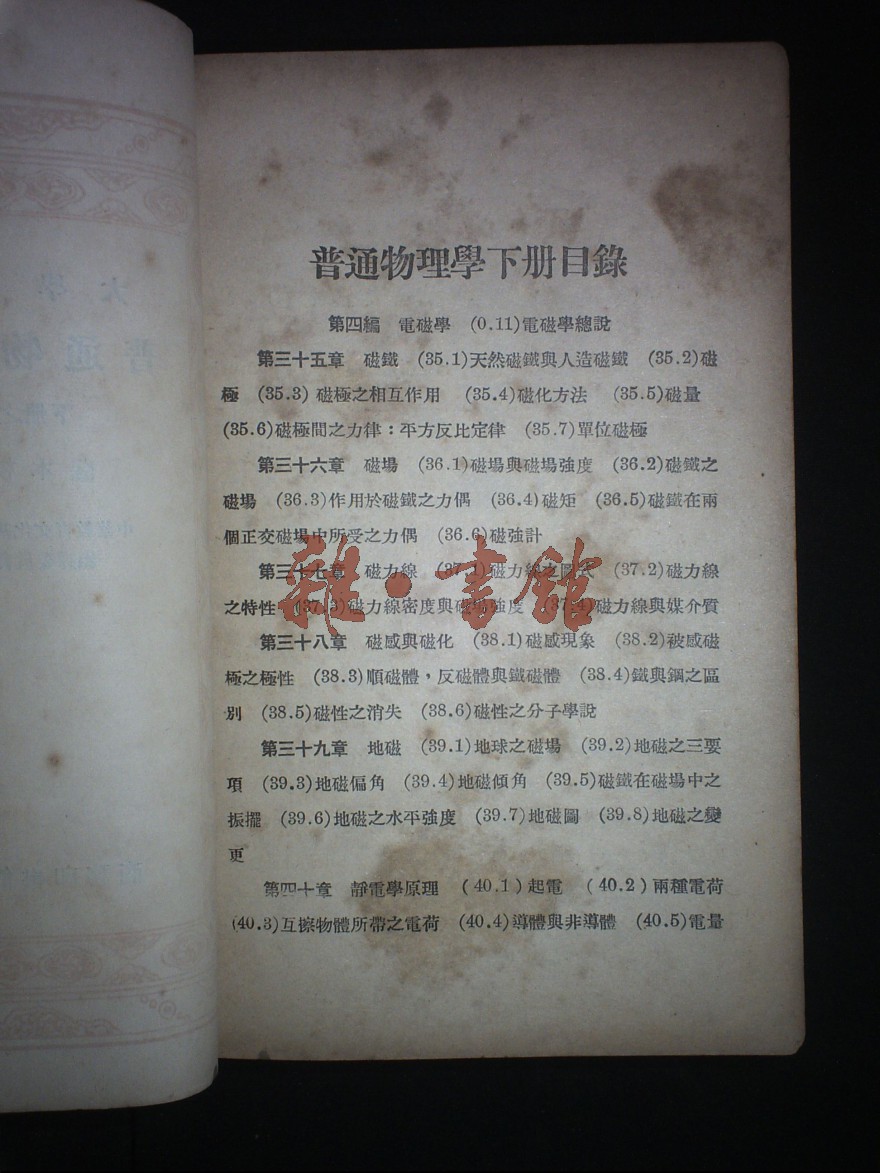 普通物理學下册目錄
第四編 電磁學 (0.11)電磁學總說
第三十五章 磁鐵 (35.1)天然磁鐵與人造磁鐵 (35.2)磁
極 (35.3) 磁極之相互作用 (35.4)磁化方法 (35.5)磁量
(35.6)磁極間之力律：平方反比定律 (35.7)單位磁極
第三十六章 磁場 (36.1)磁場與磁場強度 (36.2)磁鐵之
磁場 (36.3)作用於磁鐵之力偶 (36.4)磁矩 (36.5)磁鐵在兩
個正交磁場中所受之力偶 (36.6)磁強計
第三十七章 磁力線 (37.1)磁力線之圖式 (37.2)磁力線
之特性 (37.3)磁力線密度與磁場強度 (37.4)磁力線與媒介質
雜·書館
第三十八章 磁感與磁化 (38.1)磁感現象 (38.2)被感磁
極之極性 (38.3)順磁體，反磁體與鐵磁體 (38.4)鐵與鋼之區
別 (38.5)磁性之消失 (38.6)磁性之分子學說
第三十九章 地磁 (39.1)地球之磁場 (39.2)地磁之三要
項 (39.3)地磁偏角 (39.4)地磁傾角 (39.5)磁鐵在磁場中之
振擺 (39.6)地磁之水平強度 (39.7)地磁圖 (39.8)地磁之變
更
第四十章 靜電學原理 (40.1)起電 (40.2)兩種電荷
(40.3)互擦物體所帶之電荷 (40.4)導體與非導體 (40.5)電量